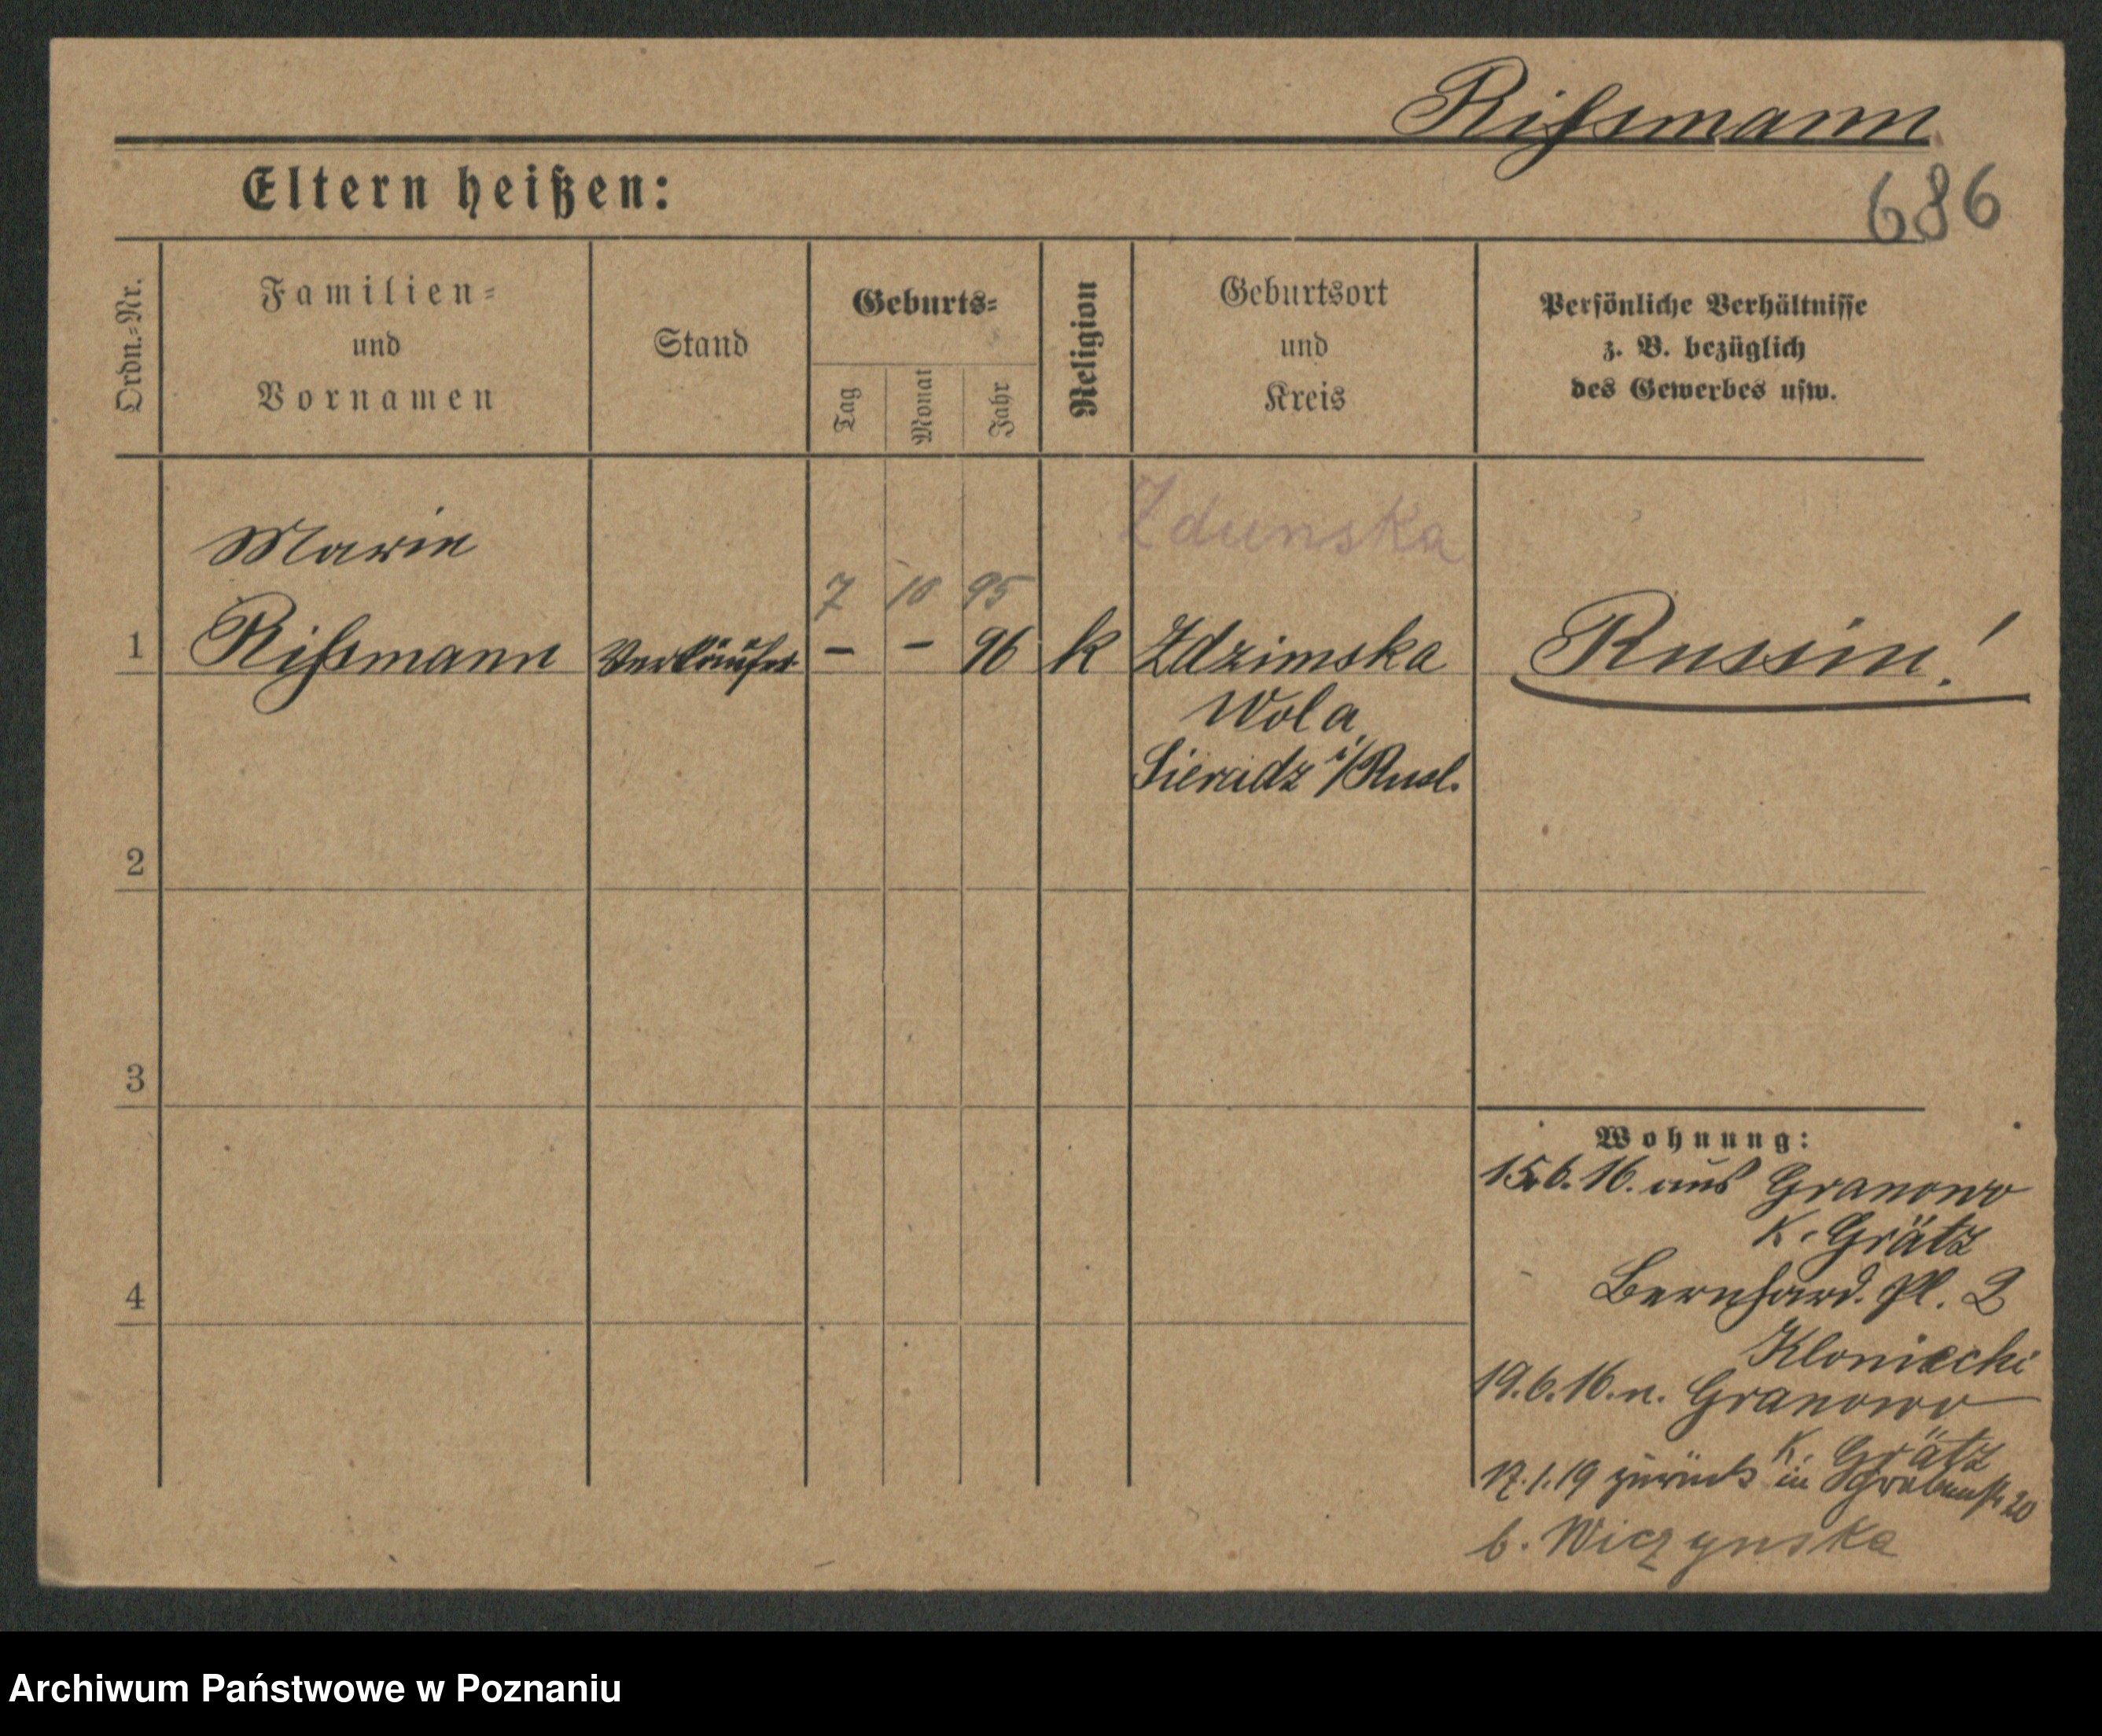 Rißmann
686
Eltern heißen:
Ordn.-Nr.
Familien-
und
Vornamen
Stand
Geburts-
Tag
Monat
Jahr
Religion
Geburtsort
und
Kreis
Persönliche Verhältnisse
z. B. bezüglich
des Gewerbes usw.
Zdunska
Marie
7 10 95
1 Rißmann - - 96 k Zdzimska Russin!
Wola
Sieradz i/Rusl.
2
3
4
Wohnung:
15.6.16. aus Granowo
K. Grätz
Bernhard. Pl. 2
19.6.16. n. Granowo
K. Grätz
17.1.19 zurück in Grabenstr 20
b. Wiczynska
Archiwum Państwowe w Poznaniu